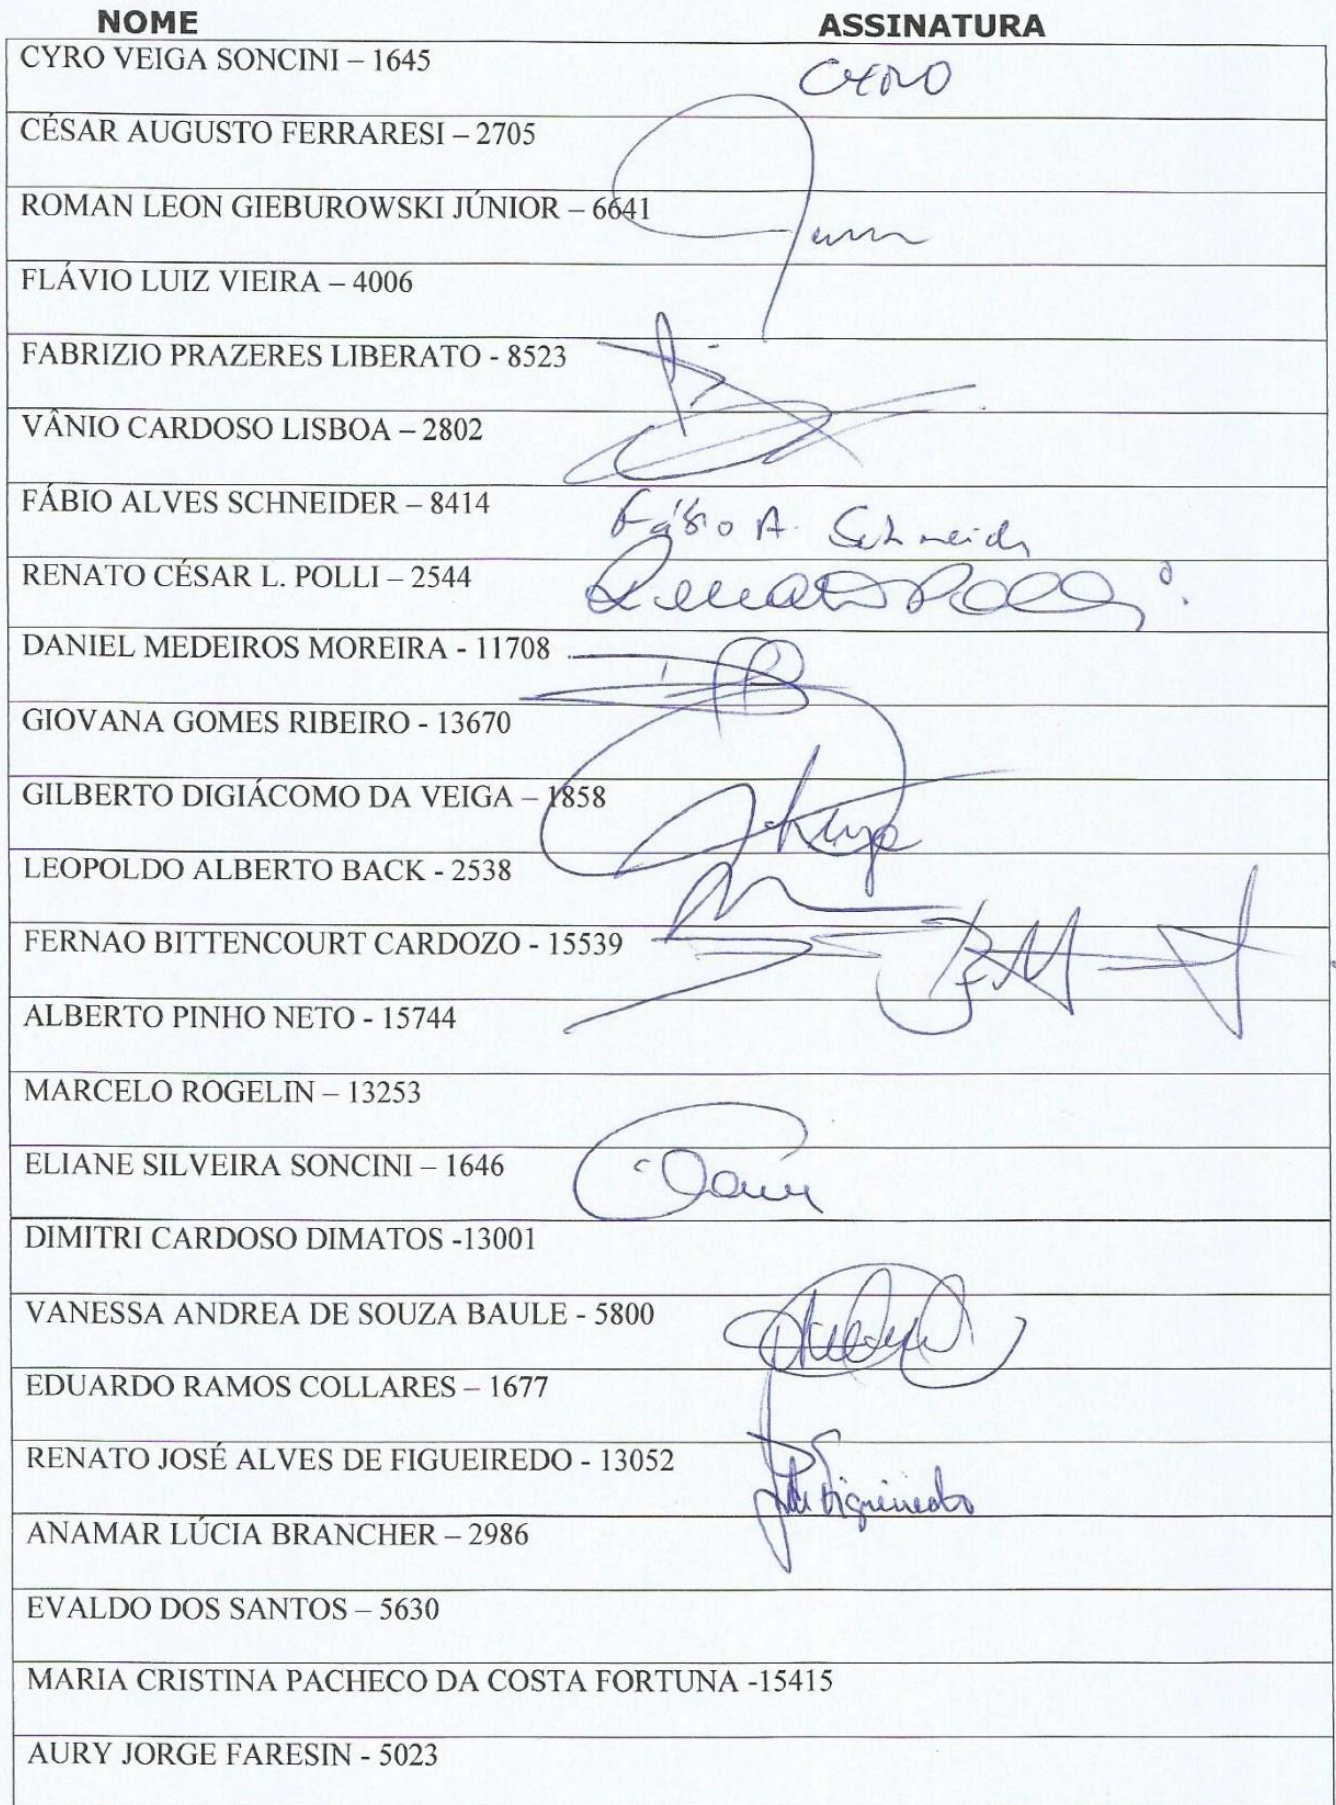 NOME ASSINATURA
CYRO VEIGA SONCINI – 1645 CYRO
CÉSAR AUGUSTO FERRARESI – 2705
ROMAN LEON GIEBUROWSKI JÚNIOR – 6641
FLÁVIO LUIZ VIEIRA – 4006
FABRIZIO PRAZERES LIBERATO - 8523
VÂNIO CARDOSO LISBOA – 2802
FÁBIO ALVES SCHNEIDER – 8414 Fábio A. Schneider
RENATO CÉSAR L. POLLI – 2544 Renato Polli
DANIEL MEDEIROS MOREIRA - 11708
GIOVANA GOMES RIBEIRO - 13670
GILBERTO DIGIÁCOMO DA VEIGA – 1858
LEOPOLDO ALBERTO BACK - 2538
FERNAO BITTENCOURT CARDOZO - 15539
ALBERTO PINHO NETO - 15744
MARCELO ROGELIN – 13253
ELIANE SILVEIRA SONCINI – 1646
DIMITRI CARDOSO DIMATOS -13001
VANESSA ANDREA DE SOUZA BAULE - 5800
EDUARDO RAMOS COLLARES – 1677
RENATO JOSÉ ALVES DE FIGUEIREDO - 13052 Figueiredo
ANAMAR LÚCIA BRANCHER – 2986
EVALDO DOS SANTOS – 5630
MARIA CRISTINA PACHECO DA COSTA FORTUNA -15415
AURY JORGE FARESIN - 5023